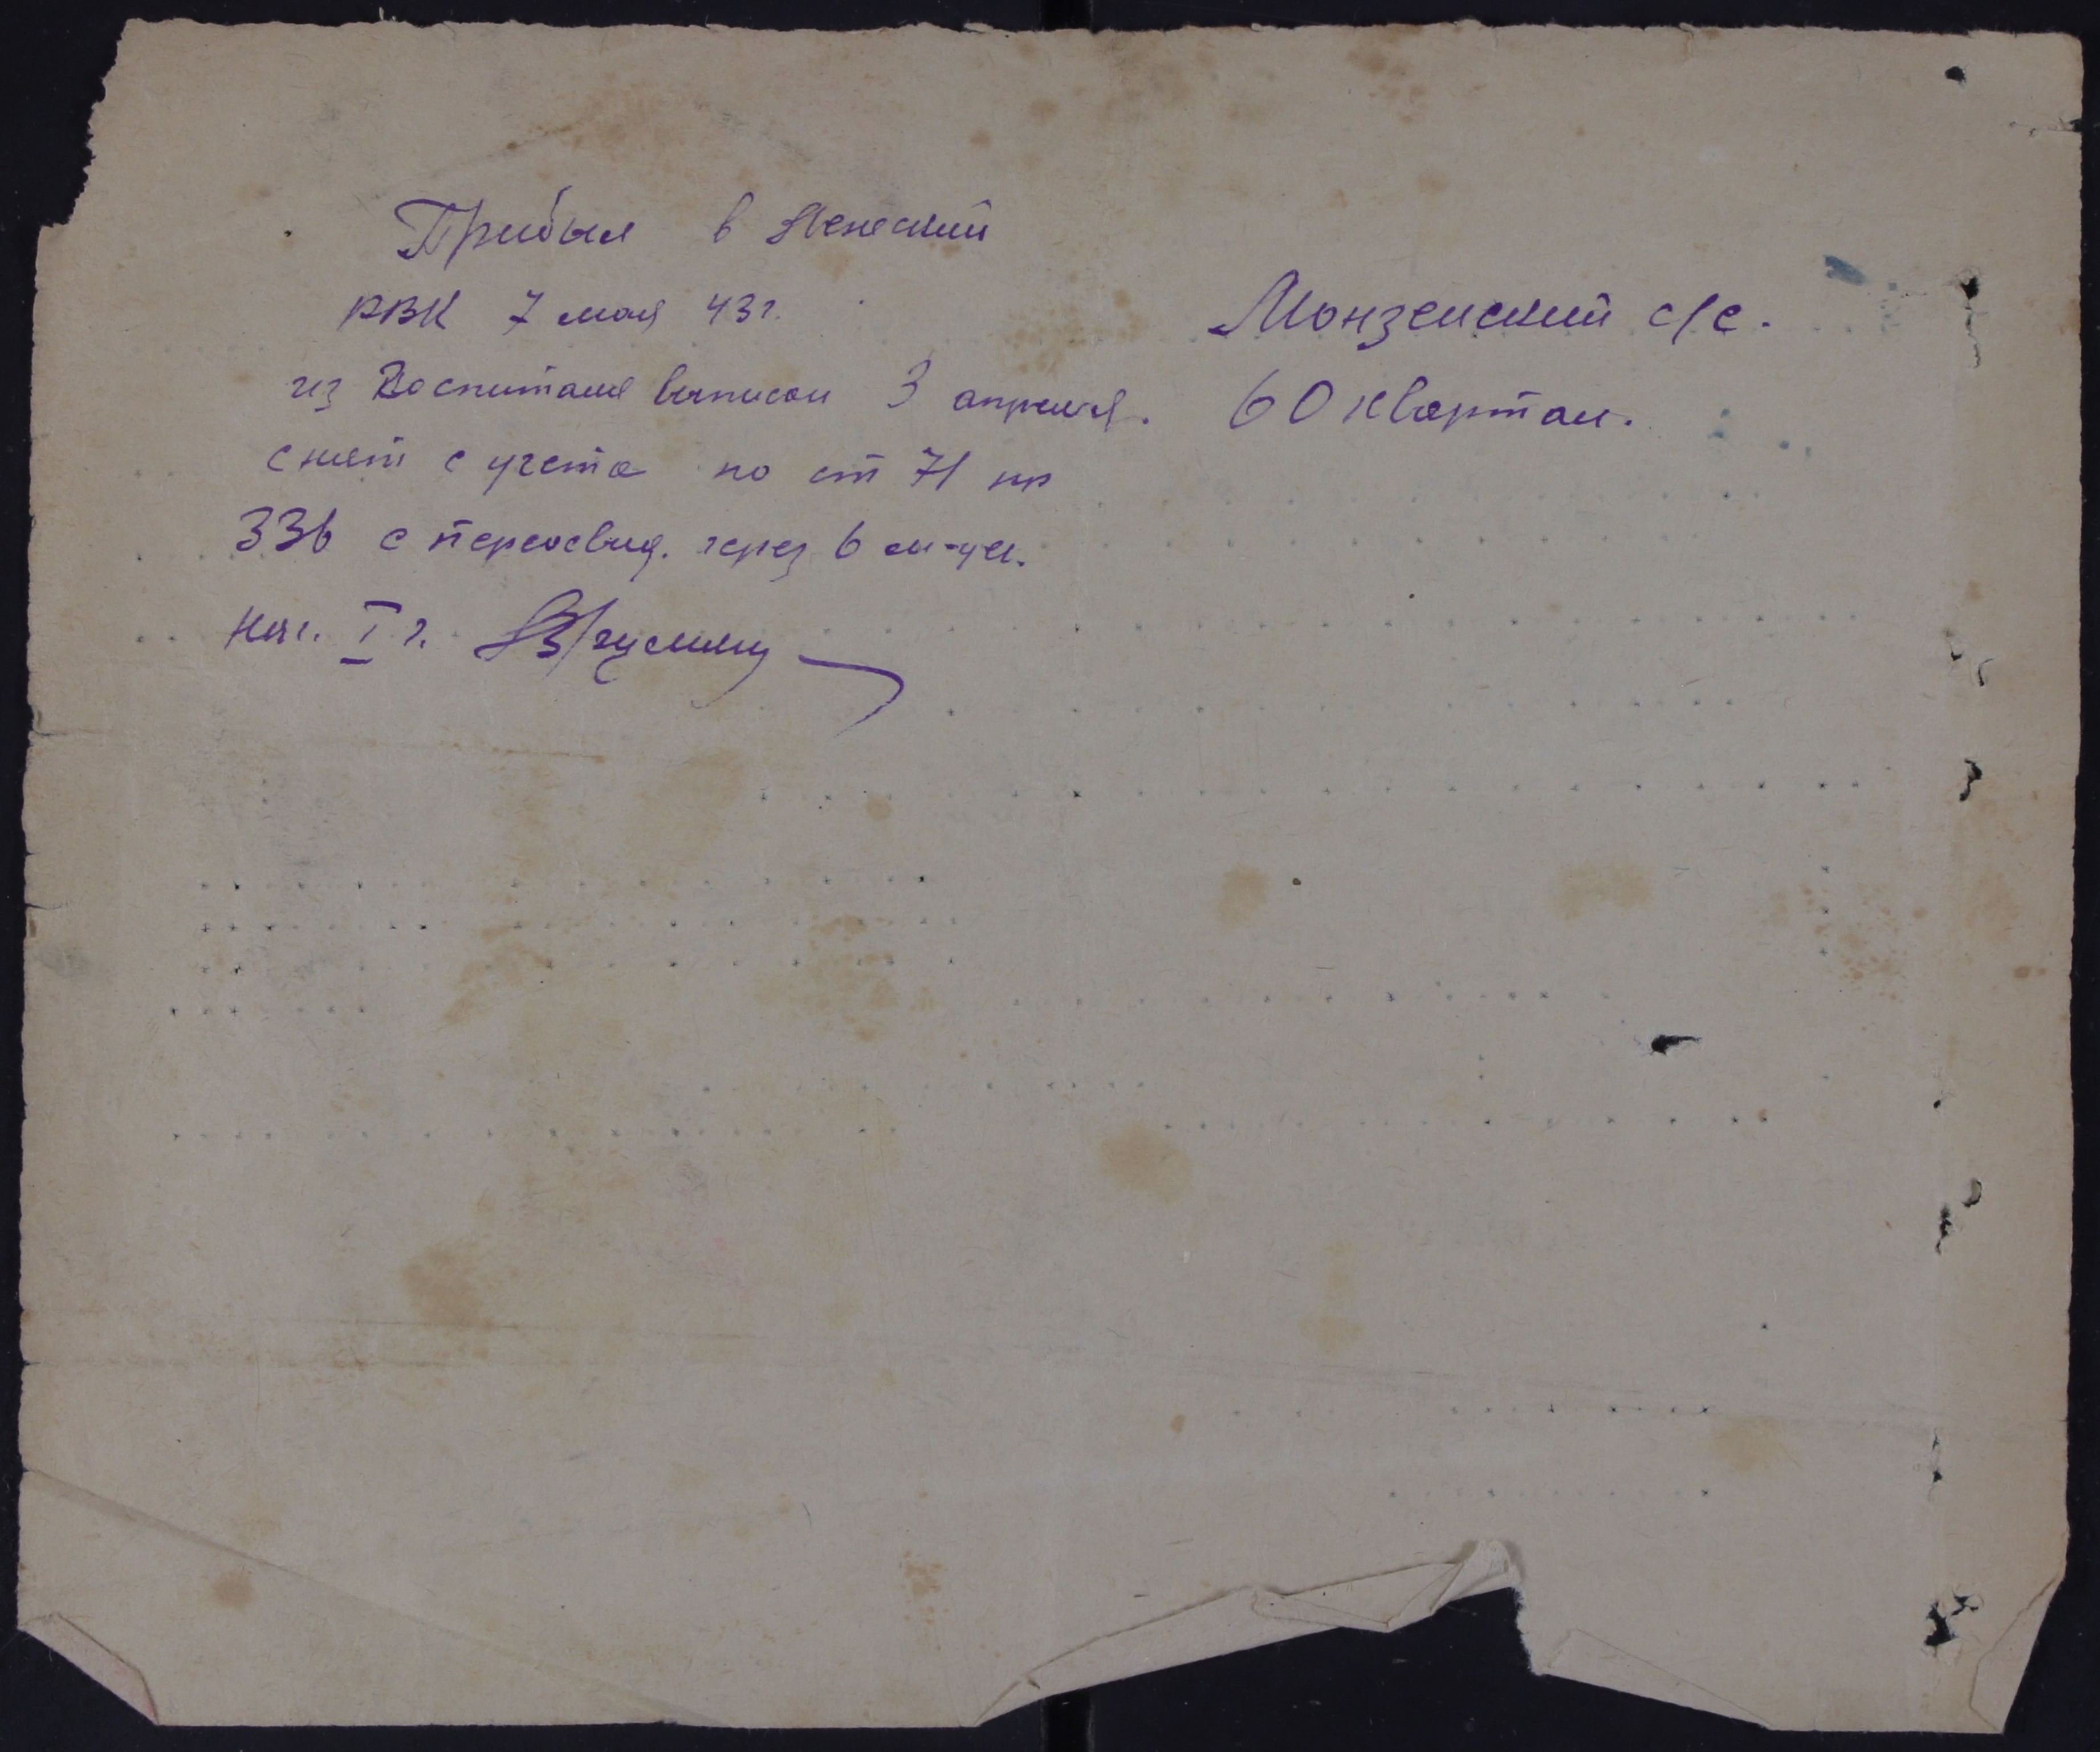 Прибыл в Лежский
РВК 7 мая 43 г.
из госпиталя выписан 3 апреля.
снят с учета по ст 71 пр
336 с переосвид. через 6 м-цев.
Нач. I ч.
Монзенский с/с.
60 квартал.